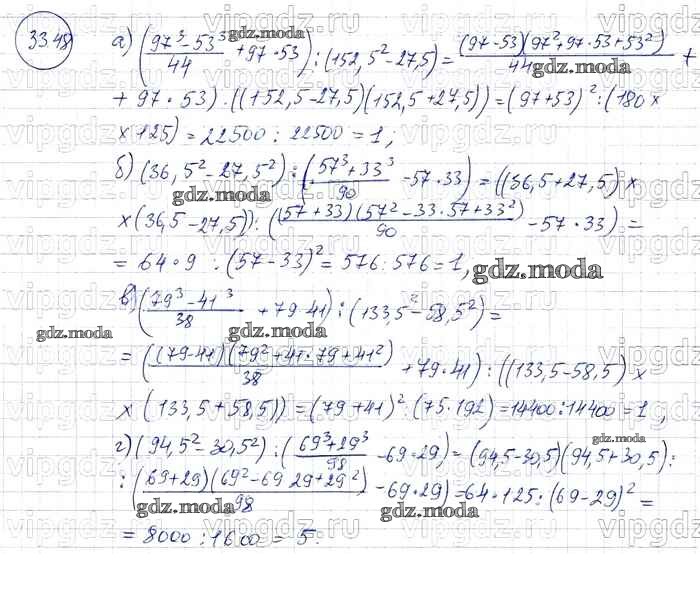 33.48
а) ((97³ - 53³)/44 + 97·53) : (152,5² - 27,5) = ((97-53)(97²+97·53+53²))/44 +
+ 97·53) : ((152,5-27,5)(152,5+27,5)) = (97+53)² : (180 ×
× 125) = 22500 : 22500 = 1;
б) (36,5² - 27,5²) : ((57³+33³)/90 - 57·33) = ((36,5+27,5) ×
× (36,5-27,5)) : (((57+33)(57²-33·57+33²))/90 - 57·33) =
= 64·9 : (57-33)² = 576 : 576 = 1,
в) ((79³ - 41³)/38 + 79·41) : (133,5² - 58,5²) =
= (((79-41)(79²+41·79+41²))/38 + 79·41) : ((133,5-58,5) ×
× (133,5+58,5)) = (79+41)² : (75·192) = 14400 : 14400 = 1,
г) (94,5² - 30,5²) : ((69³+29³)/98 - 69·29) = (94,5-30,5)(94,5+30,5) :
: (((69+29)(69²-69 29+29²))/98 - 69·29) = 64·125 : (69-29)² =
= 8000 : 1600 = 5.
gdz.moda
vipgdz.ru